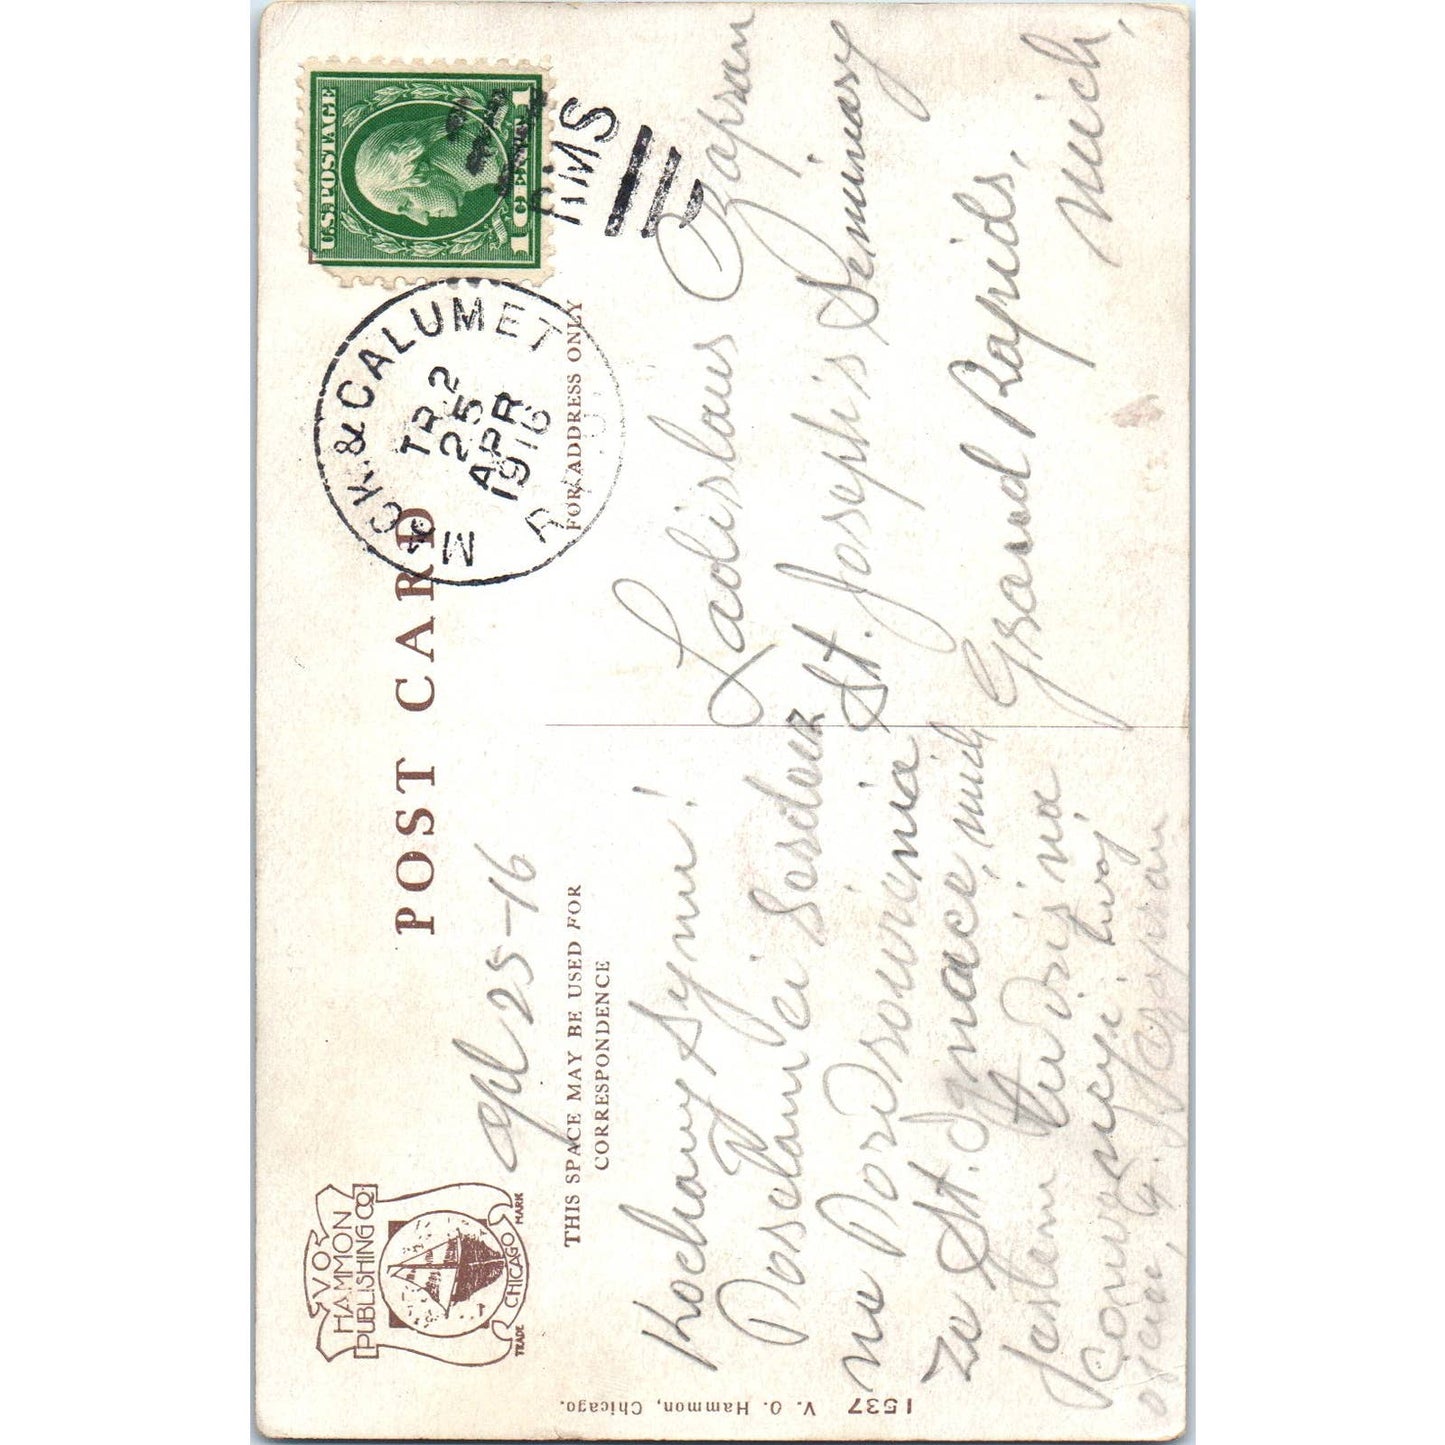 POST CARD
VO
HAMMON
PUBLISHING CO
TRADE CHICAGO MARK
THIS SPACE MAY BE USED FOR
CORRESPONDENCE
FOR ADDRESS ONLY
U.S. POSTAGE
1 CENT 1
MACK. & CALUMET
TR. 2
25
APR
1916
RMS
1537 V. O. Hammon, Chicago.
Apl 25-16
Kochany Synu!
Posełam Ci
na
Ze St. Ignace, Mich
Jestem tu dziś na
twój
ojciec,
Ladislaus Czapran
St. Joseph's Seminary
Grand Rapids,
Mich,